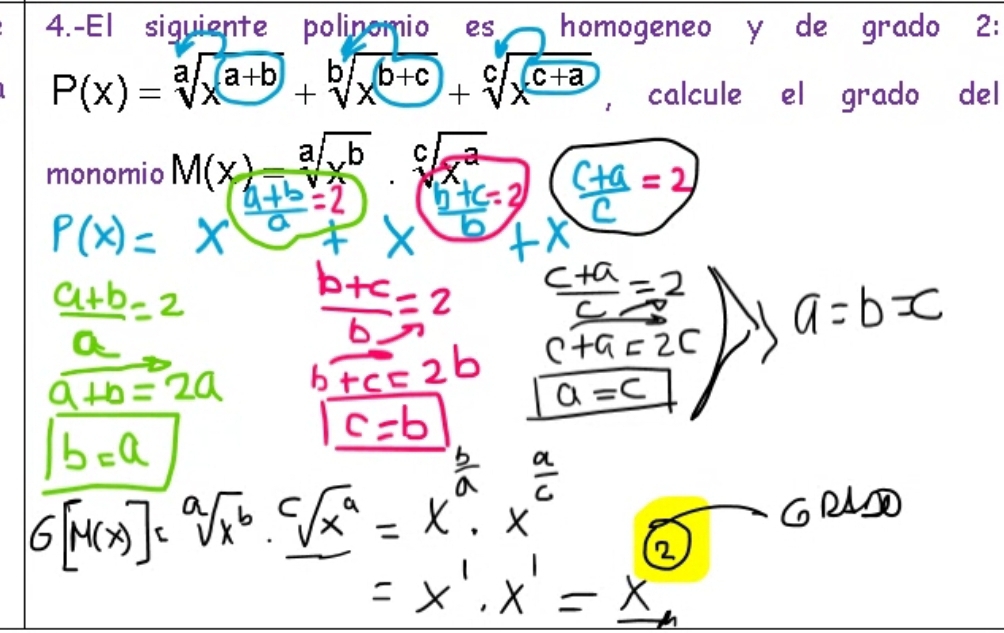 4.-El siguiente polinomio es homogeneo y de grado 2:
P(x) = ᵃ√x^(a+b) + ᵇ√x^(b+c) + ᶜ√x^(c+a) , calcule el grado del
monomio M(x) = ᵃ√x^b . ᶜ√x^a
P(x) = x^((a+b)/a = 2) + x^((b+c)/b = 2) + x^((c+a)/c = 2)
(a+b)/a = 2
a+b = 2a
b = a
(b+c)/b = 2
b+c = 2b
c = b
(c+a)/c = 2
c+a = 2c
a = c
a = b = c
G[M(x)] = ᵃ√x^b . ᶜ√x^a = x^(b/a) . x^(a/c)
= x^1 . x^1 = x^2
GRADO